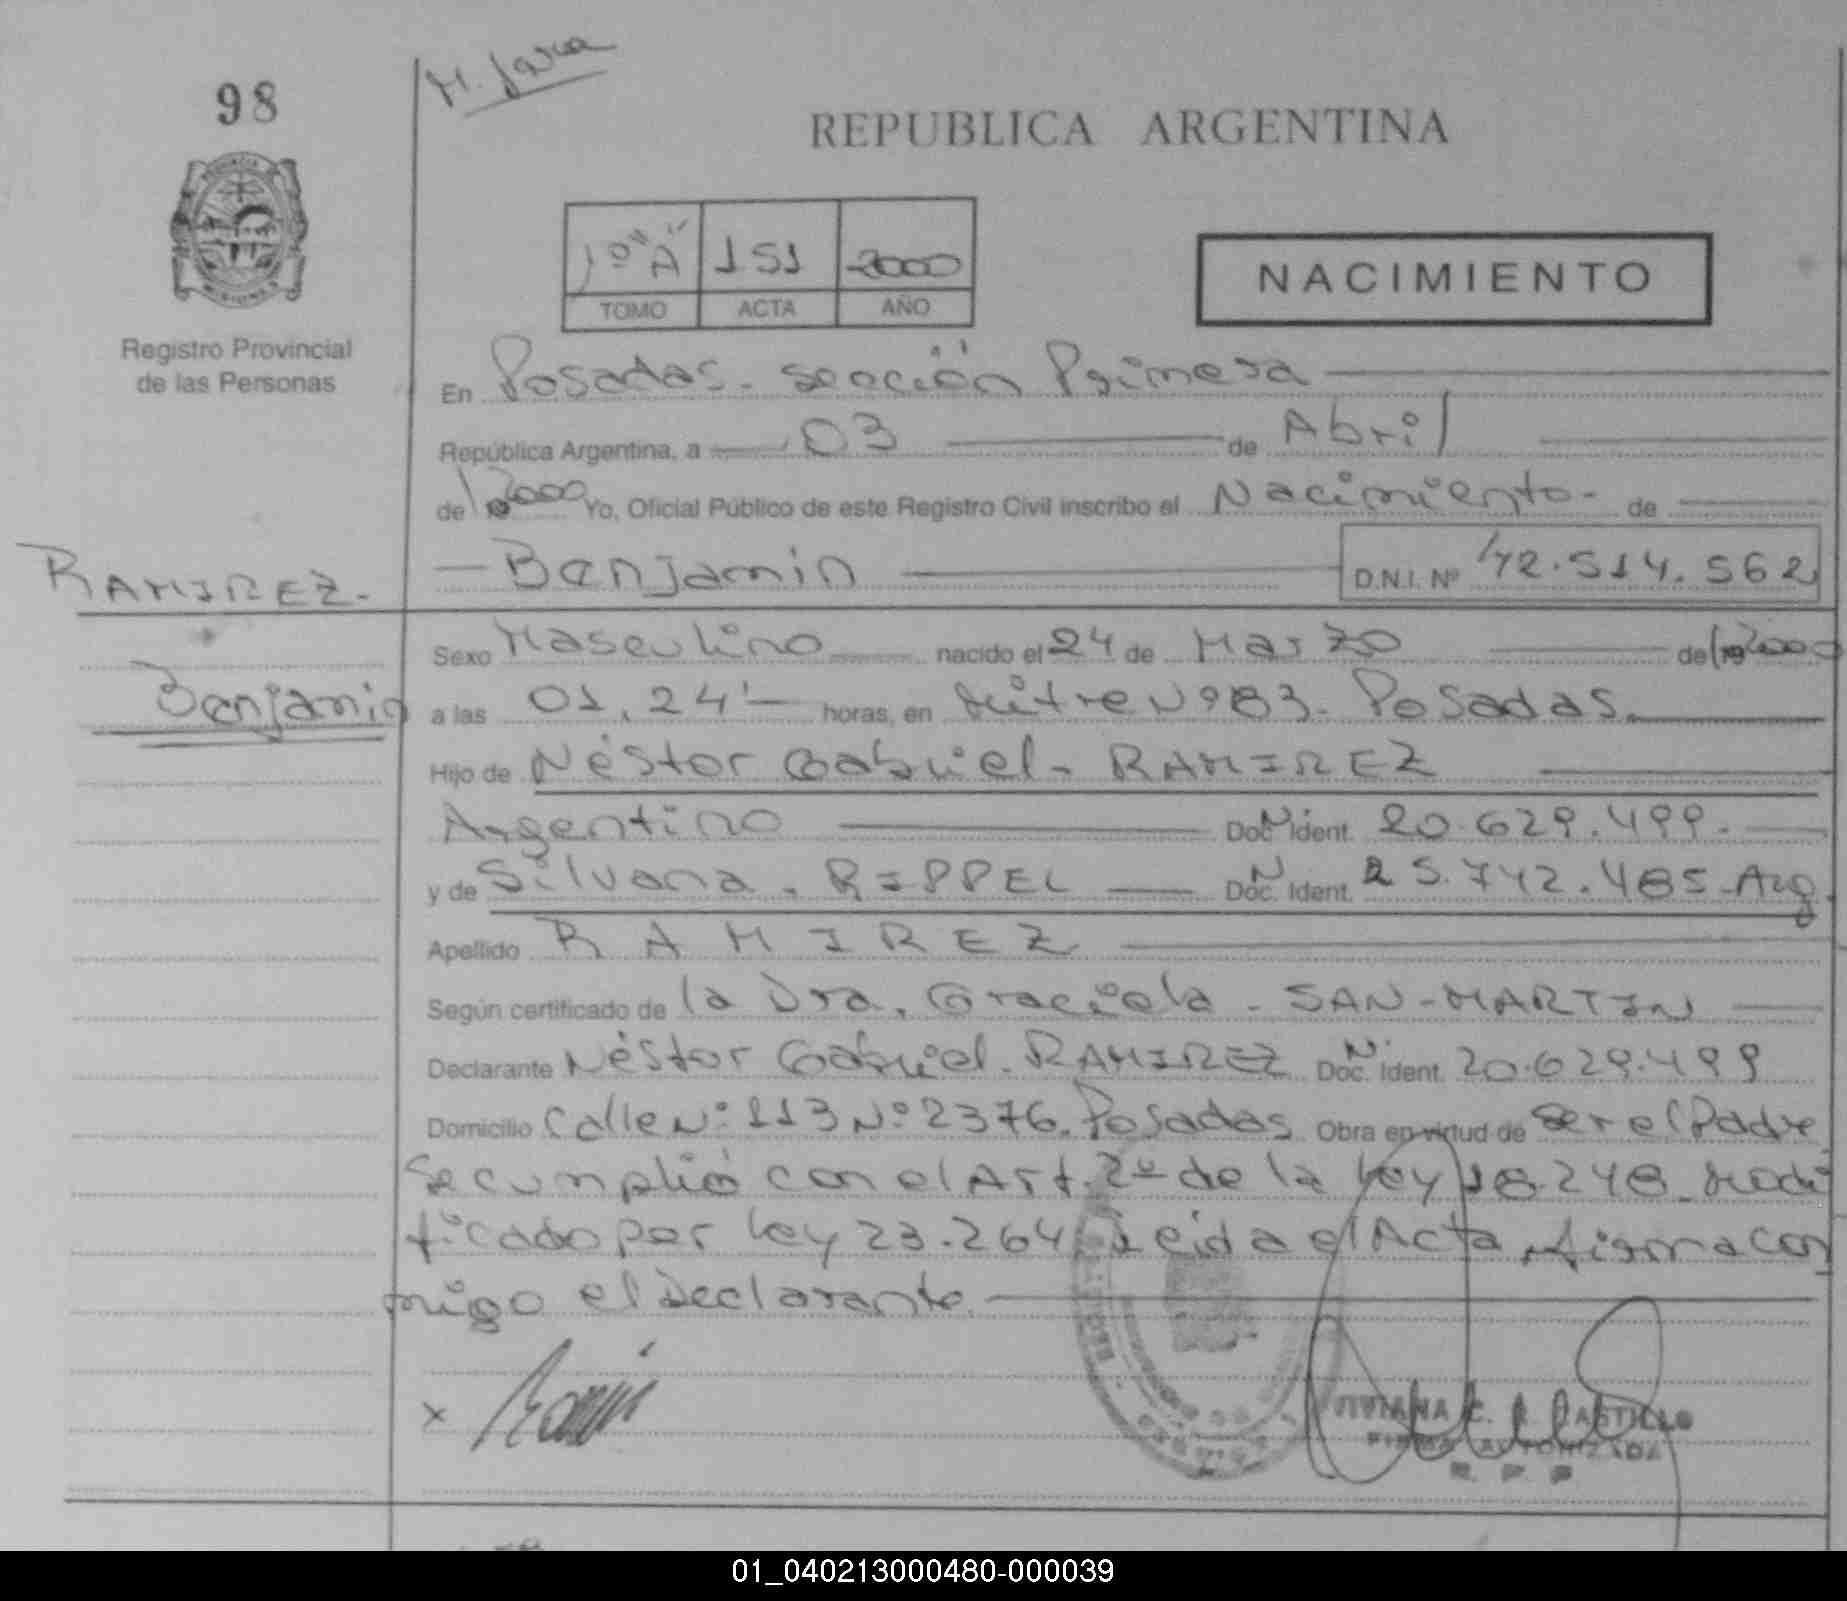 98
M. Java
REPUBLICA ARGENTINA
1º "A" 151 2000
TOMO ACTA AÑO
NACIMIENTO
Registro Provincial
de las Personas
En Posadas - sección Primera
República Argentina, a 03 de Abril
de 2000 Yo, Oficial Público de este Registro Civil inscribo el Nacimiento - de
RAMIREZ -
Benjamin D.N.I. Nº 42.514.562
Benjamin
Sexo Masculino nacido el 24 de Marzo de 2000
a las 01,24' horas, en Mitre Nº 83 - Posadas.
Hijo de Néstor Gabriel - RAMIREZ
Argentino Doc. Ident. N 20.629.499.
y de Silvana - RIPPEL Doc. Ident. N 25.742.485 - Arg.
Apellido RAMIREZ
Según certificado de la Dra. Graciela - SAN-MARTIN
Declarante Néstor Gabriel - RAMIREZ Doc. Ident. Nº 20.629.499
Domicilio Calle Nº 113 Nº 2376. Posadas Obra en virtud de Ser el Padre
Se cumplió con el Art. 2º de la Ley 18.248 - Modi
ficado por Ley 23.264 Leida el Acta, firma con
migo el Declarante
x
VIVIANA C. CASTILLO
FIRMA AUTORIZADA
R. P. P.
01_040213000480-000039